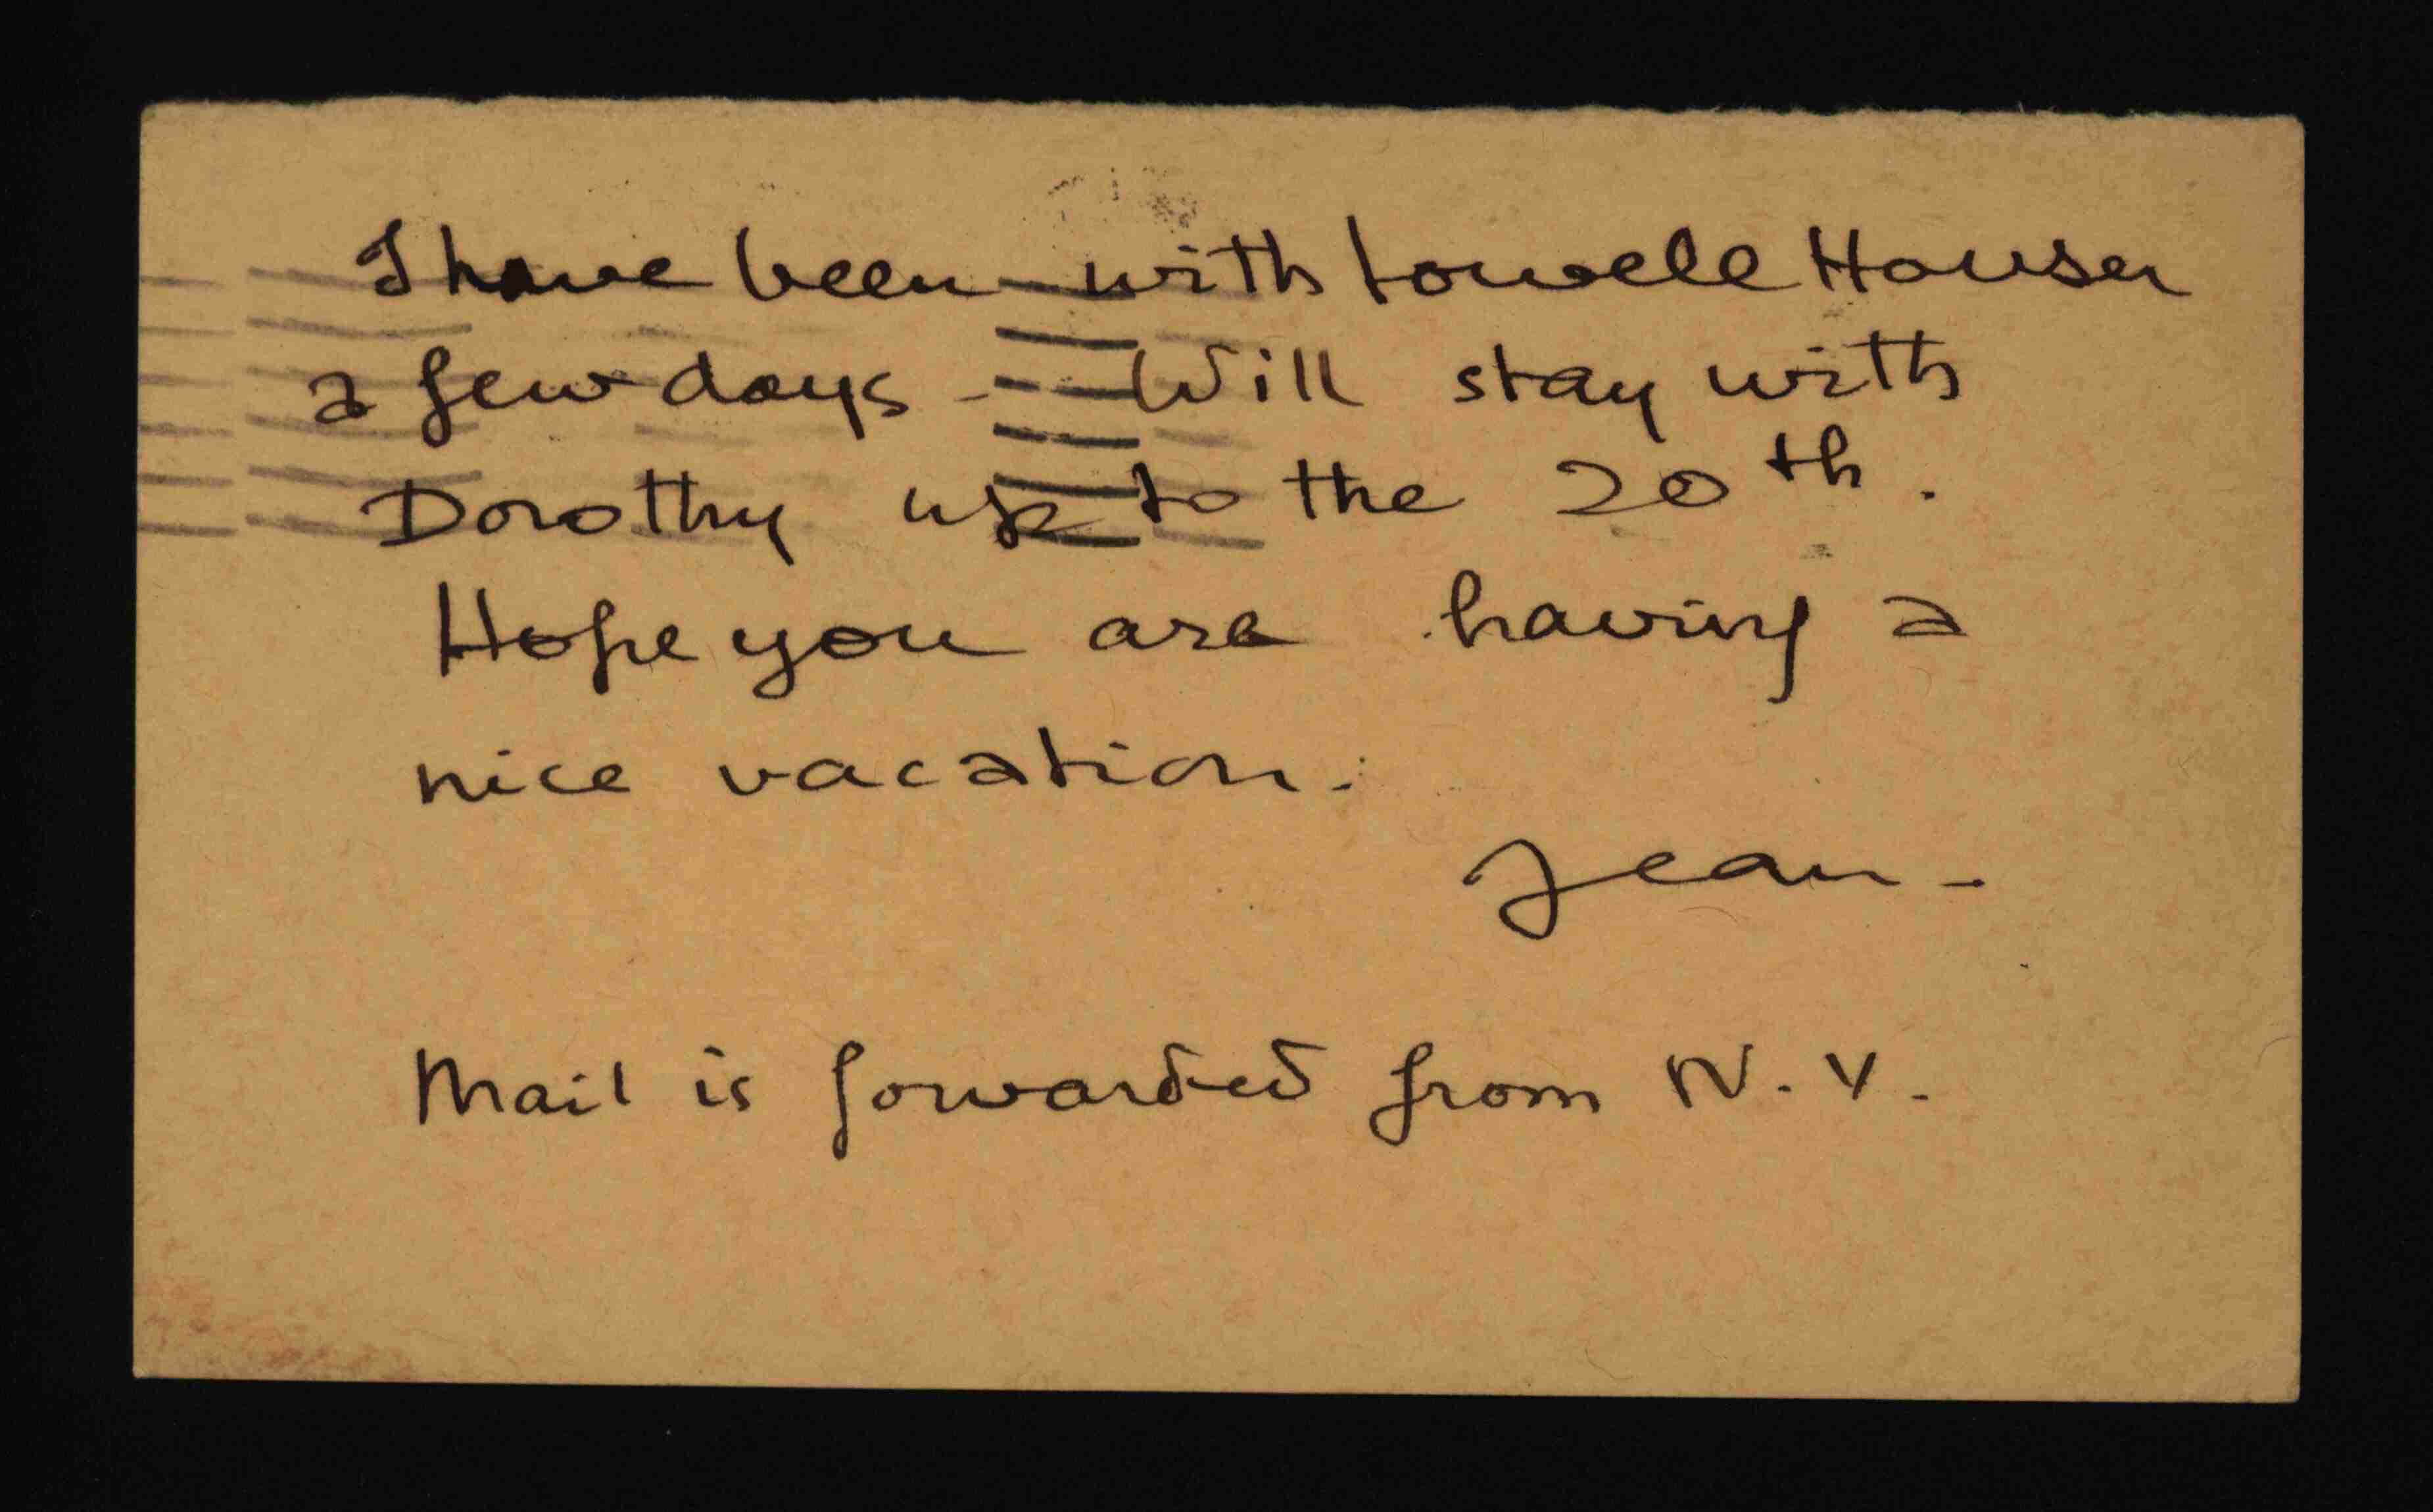 I have been with Lowell Houser
a few days - Will stay with
Dorothy up to the 20th.
Hope you are having a
nice vacation.
Jean-
Mail is forwarded from N.Y.